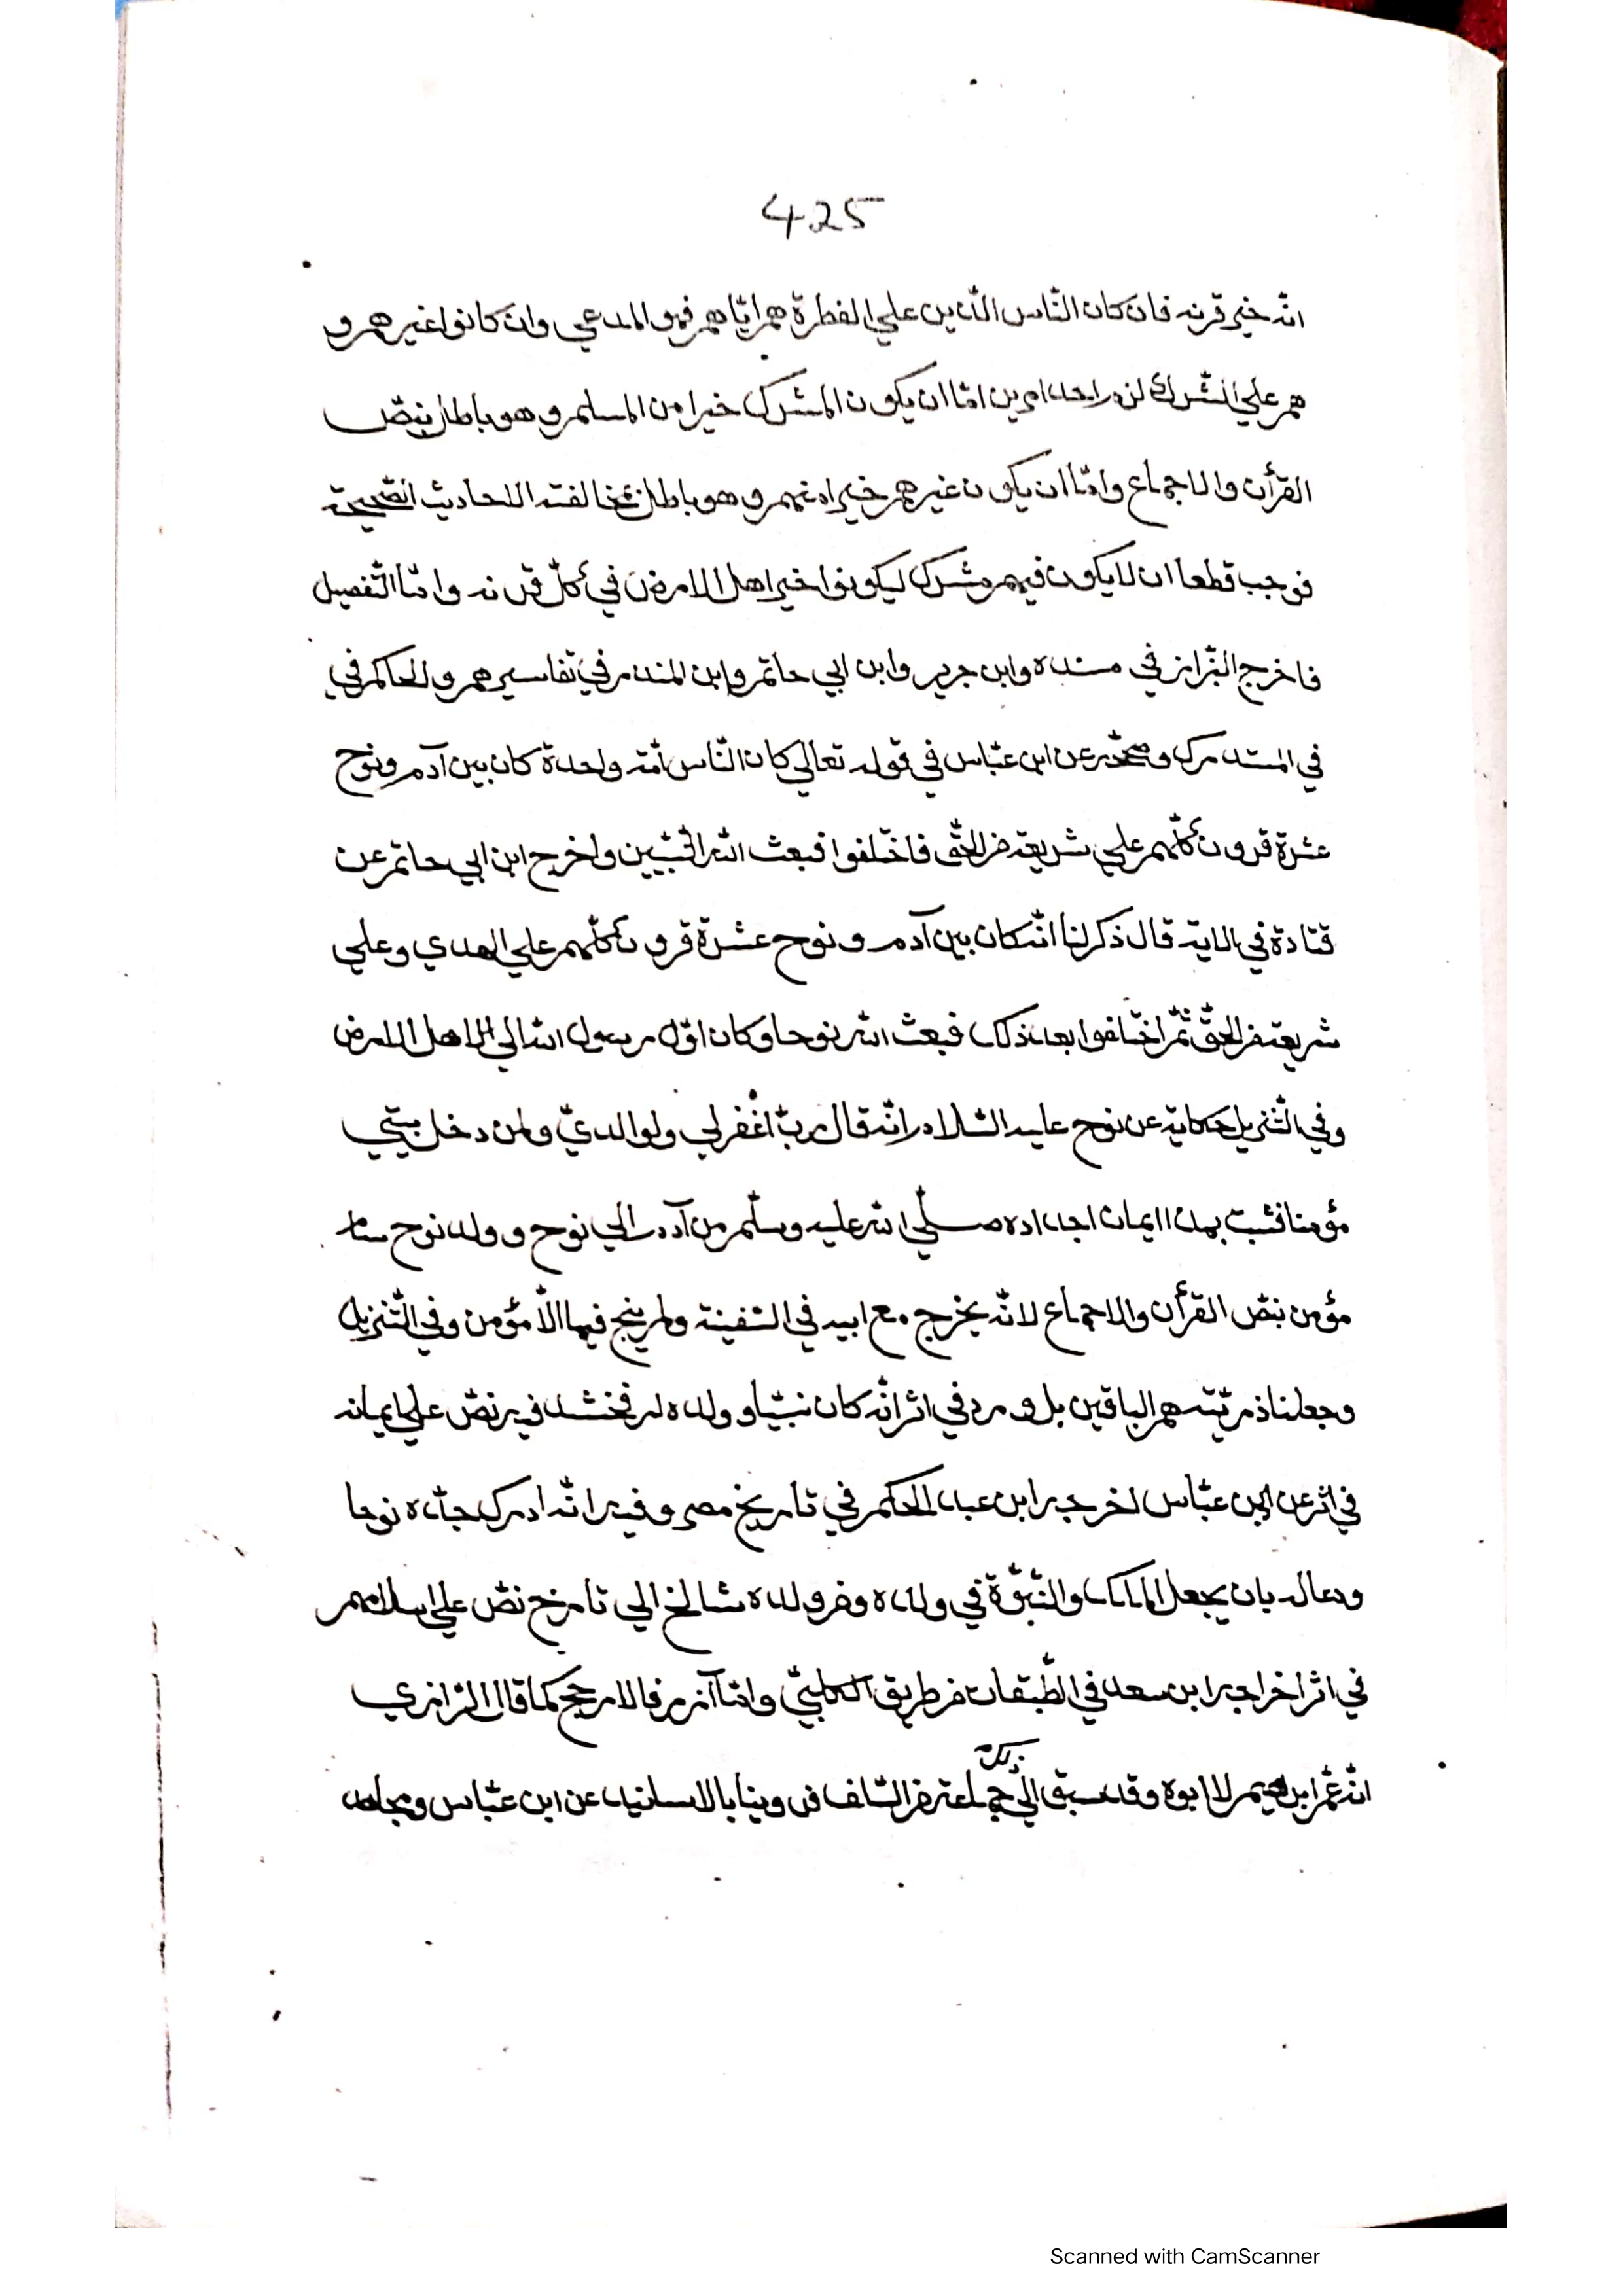 425
انّه خير قرنه فان كان النّاس الّذين علي الفطرة هم ايّاهم فهو المدعي وان كانوا غيرهم و
هم علي الشّرك لزم احد امرين امّا ان يكون المشرك خيرا من المسلم و هو باطل بنصّ
القرأن والاجماع وامّا ان يكون غيرهم خيرا منهم و هو باطل لمخالفته الاحاديث الصّحيحة
فوجب قطعا ان لا يكون فيهم مشرك ليكونوا خير اهل الارض في كلّ قرنه وامّا التّفصيل
فاخرج البّزاز في مسنده وابن جرير وابن ابي حاتم وابن المنذر في تفاسيرهم والحاكم في
في المستدرك وصحّحه عن ابن عبّاس في قوله تعالي كان النّاس امّة واحدة كان بين آدم ونوح
عشرة قرون كلّهم علي شريعة من الحقّ فاختلفوا فبعث الله النّبيّين واخرج ابن ابي حاتم عن
قتادة في الاية قال ذكر لنا انّه كان بين آدم و نوح عشرة قرون كلّهم علي الهدي وعلي
شريعة من الحقّ ثمّ اختلفوا بعد ذلك فبعث الله نوحا وكان اوّل رسول الله الي اهل الارض
وفي التّنزيل حكاية عن نوح عليه السّلام انّه قال ربّ اغفر لي ولوالديّ ولمن دخل بيتي
مؤمنا فثبت بهذا ايمان اجداده صلّي الله عليه وسلّم من آدم الي نوح و ولد نوح سام
مؤمن بنصّ القرأن والاجماع لانّه يخرج مع ابيه في السّفينة ولم ينج فيها الّا مؤمن وفي التّنزيل
وجعلنا ذرّيّته هم الباقين بل ورد في اثر انّه كان نبيّا و ولده ارفخشد فيه نصّ علي ايمانه
في اثر عن ابن عبّاس اخرجه ابن عبد الحكم في تاريخ مصر وفيه انّه ادرك جدّه نوحا
ودعا له بان يجعل الملك والنّبوّة في ولده ومن ولده شالخ الي تارخ نصّ علي اسلامهم
في اثر اخراجه ابن سعد في الطّبقات من طريق الكلبيّ وامّا آزر فالارجح كما قال الرّازي
انّه عمّ ابرهيم لا ابوه وقد سبق الي ذلك جماعة من السّلف فروينا بالاسانيد عن ابن عبّاس ومجاهد
Scanned with CamScanner